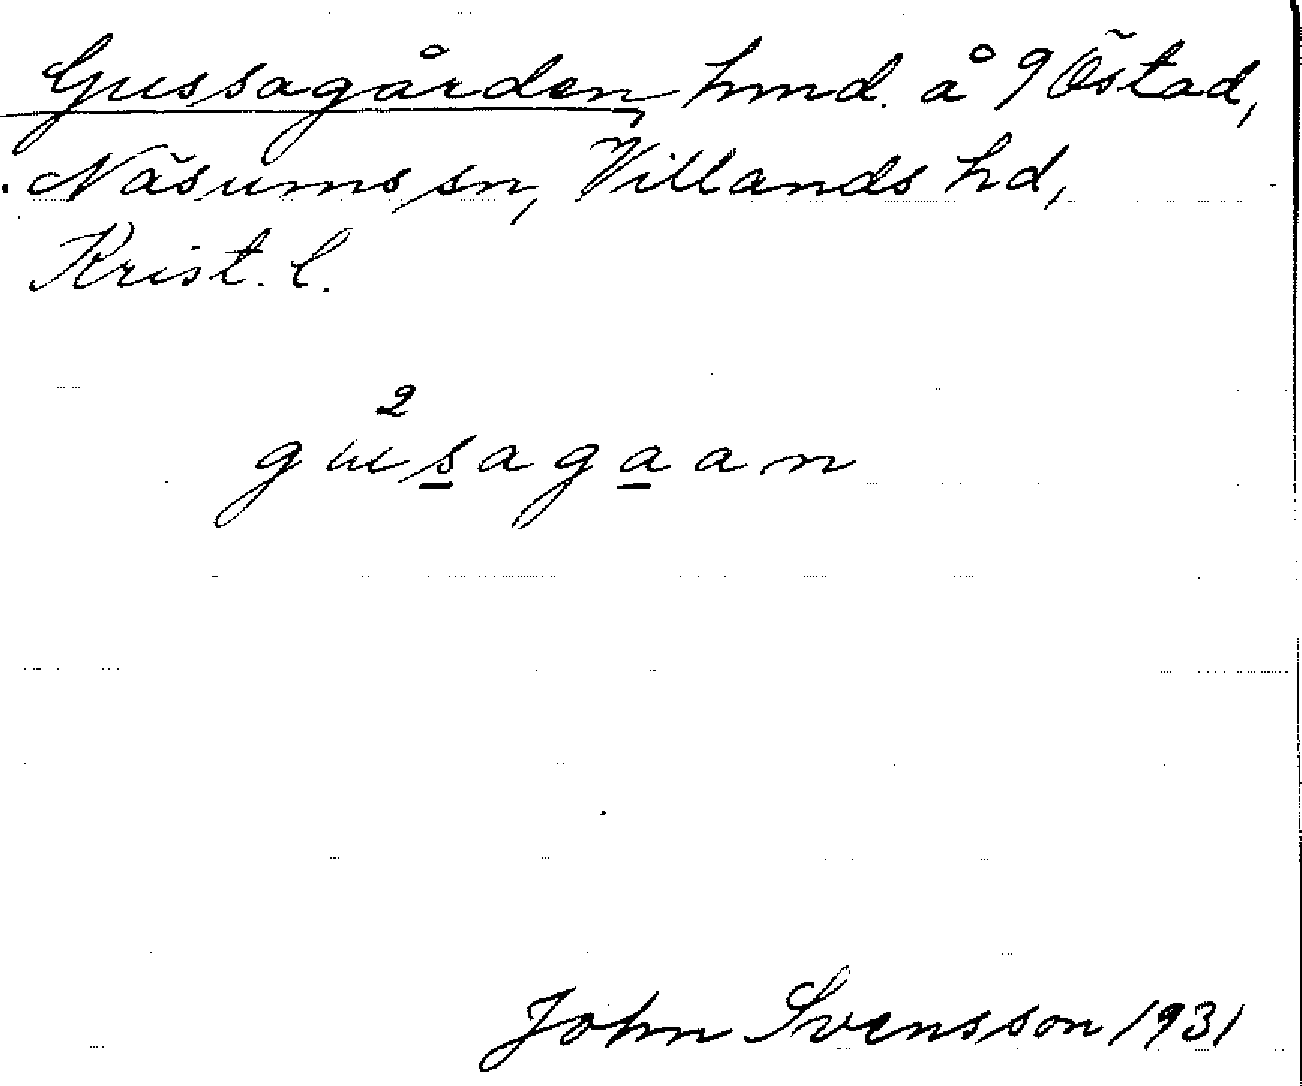 Gussagården, hmd. å 9 Östad,
Näsums sn, Villands hd,
Krist. l.
2
gusagaan
John Svensson 1931